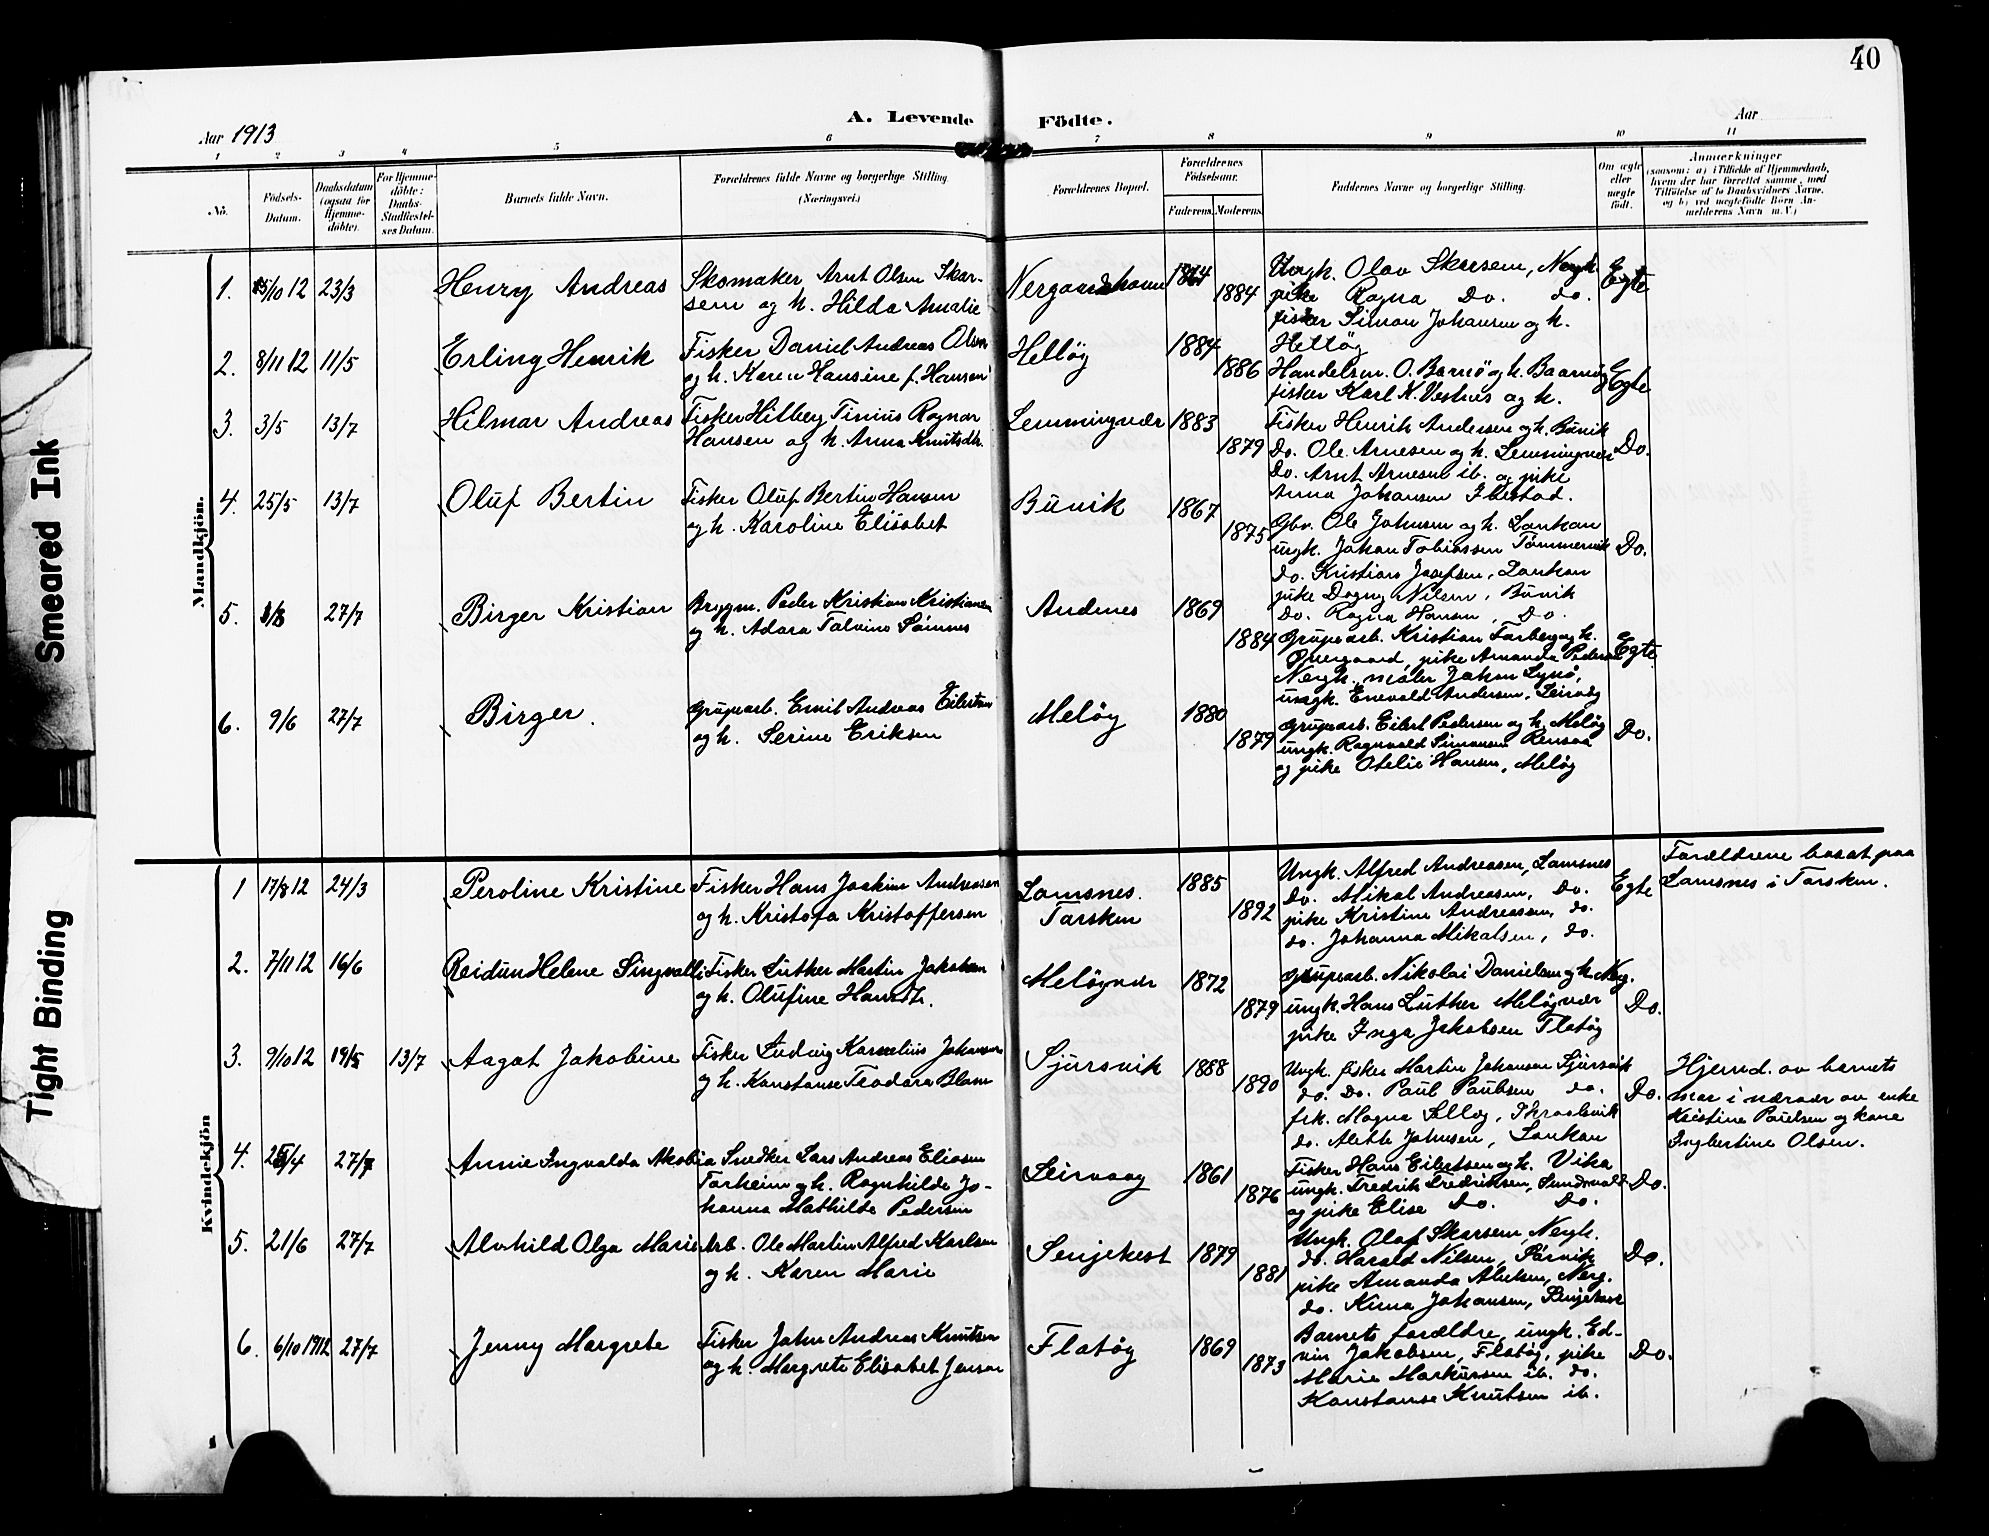 40
A. Levende Födte.
Aar 1913
Aar
1 2 3 4 5 6 7 8 9 10 11
Nō.
Födsels-
Datum.
Daabsdatum
(ogsaa for
Hjemme-
döbte).
For Hjemme-
döbte:
Daabs-
Stadfæstel-
ses Datum.
Barnets fulde Navn.
Forældrenes fulde Navne og borgerlige Stilling
(Næringsvei.)
Forældrenes Bopæl.
Forældrenes
Födselsaar.
Faderens. Moderens.
Faddernes Navne og borgerlige Stilling.
Om ægte
eller
uægte
födt.
Anmærkninger
(saasom: a) i Tilfælde af Hjemmedaab,
hvem der har forrettet samme, med
Tilföielse af to Daabsvidners Navne,
og b) ved uægtefödte Börn An-
melderens Navn m.V.)
Mandkjön.
1. 5/10 12 23/3 Henry Andreas
Skomaker Arnt Olsen Skar-
sem og h. Hilda Amalie
Nergaardshavn 1884
Ungk. Olav Skarsem, Nergh.
pike Ragna Do. do.
fisker Simon Johansen og h.
Helløy
Egte
2. 8/11 12 11/5 Erling Henrik
Fisker Daniel Andreas Olsen
og h. Karen Hansine f. Hansen
Helløy 1884 1886
Handelsm. O. Barnø og h.
fisker Karl K. Vestnes og h.
Egte
3. 3/5 13/7 Hilmar Andreas
Fisker Hilberg Tinius Ragnar
Hansen og h. Anna Knutsdtr.
Lemmingvær 1883 1879
Fisker Henrik Andersen og h. Bünik
Do. Ole Arnesen og h. Lemmingvær
Do. Arnt Arnesen ib. og pike
Anna Johansen Ibestad.
Do.
4. 25/5 13/7 Oluf Bertin
Fisker Oluf Bertin Hansen
og h. Karoline Elisabet
Büvik 1867 1875
Gbr. Ole Johnsen og h. Lankan
ungk. Johan Tobiassen Tømmervik
do. Kristian Josefsen, Lankan
pike Dagny Nilsen, Büvik
Do. Ragna Hansen, Do.
Do.
5. 27/7 Birger Kristian
Brygm. Peder Kristian Kristiansen
og h. Adara Talvine Sømnes
Andenes 1869 1884
Grubearb. Kristian Farberg og h.
pike Amanda Pedersen
Nergh. maler Johan Lynø,
ungk. Enevald Andersen, Leirvåg
Egte
6. 9/6 27/7 Birger.
Grubearb. Emil Andreas Eilertsen
og h. Serine Eriksen
Meløy 1880 1879
Grubearb. Eilert Pedersen og h. Meløy
ungk. Ragnvald Simonsen Rensaa
og pike Otelie Hansen, Meløy
Do.
Kvindekjön
1 17/8 12 24/3 Peroline Kristine
Fisker Hans Joakim Andreassen
og h. Kristofa Kristoffersen
Lamsnes.
Tarsken
1885 1892
Ungk. Alfred Andreasen, Lamsnes
Do. Mikal Andreasen, Do.
pike Kristine Andreassen, do.
do. Johanna Mikalsen, do.
Egte
Forældrene bosat paa
Lamsnes i Tarsken.
2. 7/11 12 16/6 Reidun Helene Singvalli
Fisker Luther Martin Jakobsen
og h. Olufine Hansdtr.
Meløyvær 1872 1879
Grubearb. Nikolai Danielsen og h. Nerg.
ungk. Hans Luther Meløyvær
pike Inga Jakobsen Flatøy
Do.
3. 9/10 12 19/5 13/7 Aagot Jakobine
Fisker Ludvig Kornelius Johansen
og h. Konstanse Teodora Blom
Sjursvik 1888 1890
Ungk. fisker Martin Johansen Sjursvik
do. Do. Paul Paulsen do.
frk. Magna
do. Alette Johnsen, Lankan
Do.
Hjemd. av barnets
mor i nærvær av enke
Kristine Paulsen og kone
Ingbertine Olsen.
4. 25/4 27/7 Annie Ingvalda Akobia
Snedker Lars Andreas Eliasen
Torheim og h. Ragnhilde Jo-
hanna Mathilde Pedersen
Leirvaag 1861 1876
Fisker Hans Eilertsen og h. Vika
ungk. Fredrik Fredriksen, Sundsvold
og pike Elise Do. Do.
Do.
5. 21/6 27/7 Alvhild Olga Marie
Arb. Ole Martin Alfred Karlsen
og h. Karen Marie
Senjehest 1879 1881
Ungk. Olaf Skarsem, Nergh.
do. Harald Nilsen,
pike Amanda Nerg.
do. Anna Johansen, Senjehest
Do.
6. 6/10 1912 27/7 Jenny Margrete
Fisker John Andreas Knutsen
og h. Margrete Elisabet Jensen
Flatøy 1869 1873
Barnets forældre, ungk. Ed-
vin Jakobsen, Flatøy, pike
Marie Markussen ib. do.
Konstanse Knutsen ib.
Do.
Smeared Ink
Tight Binding